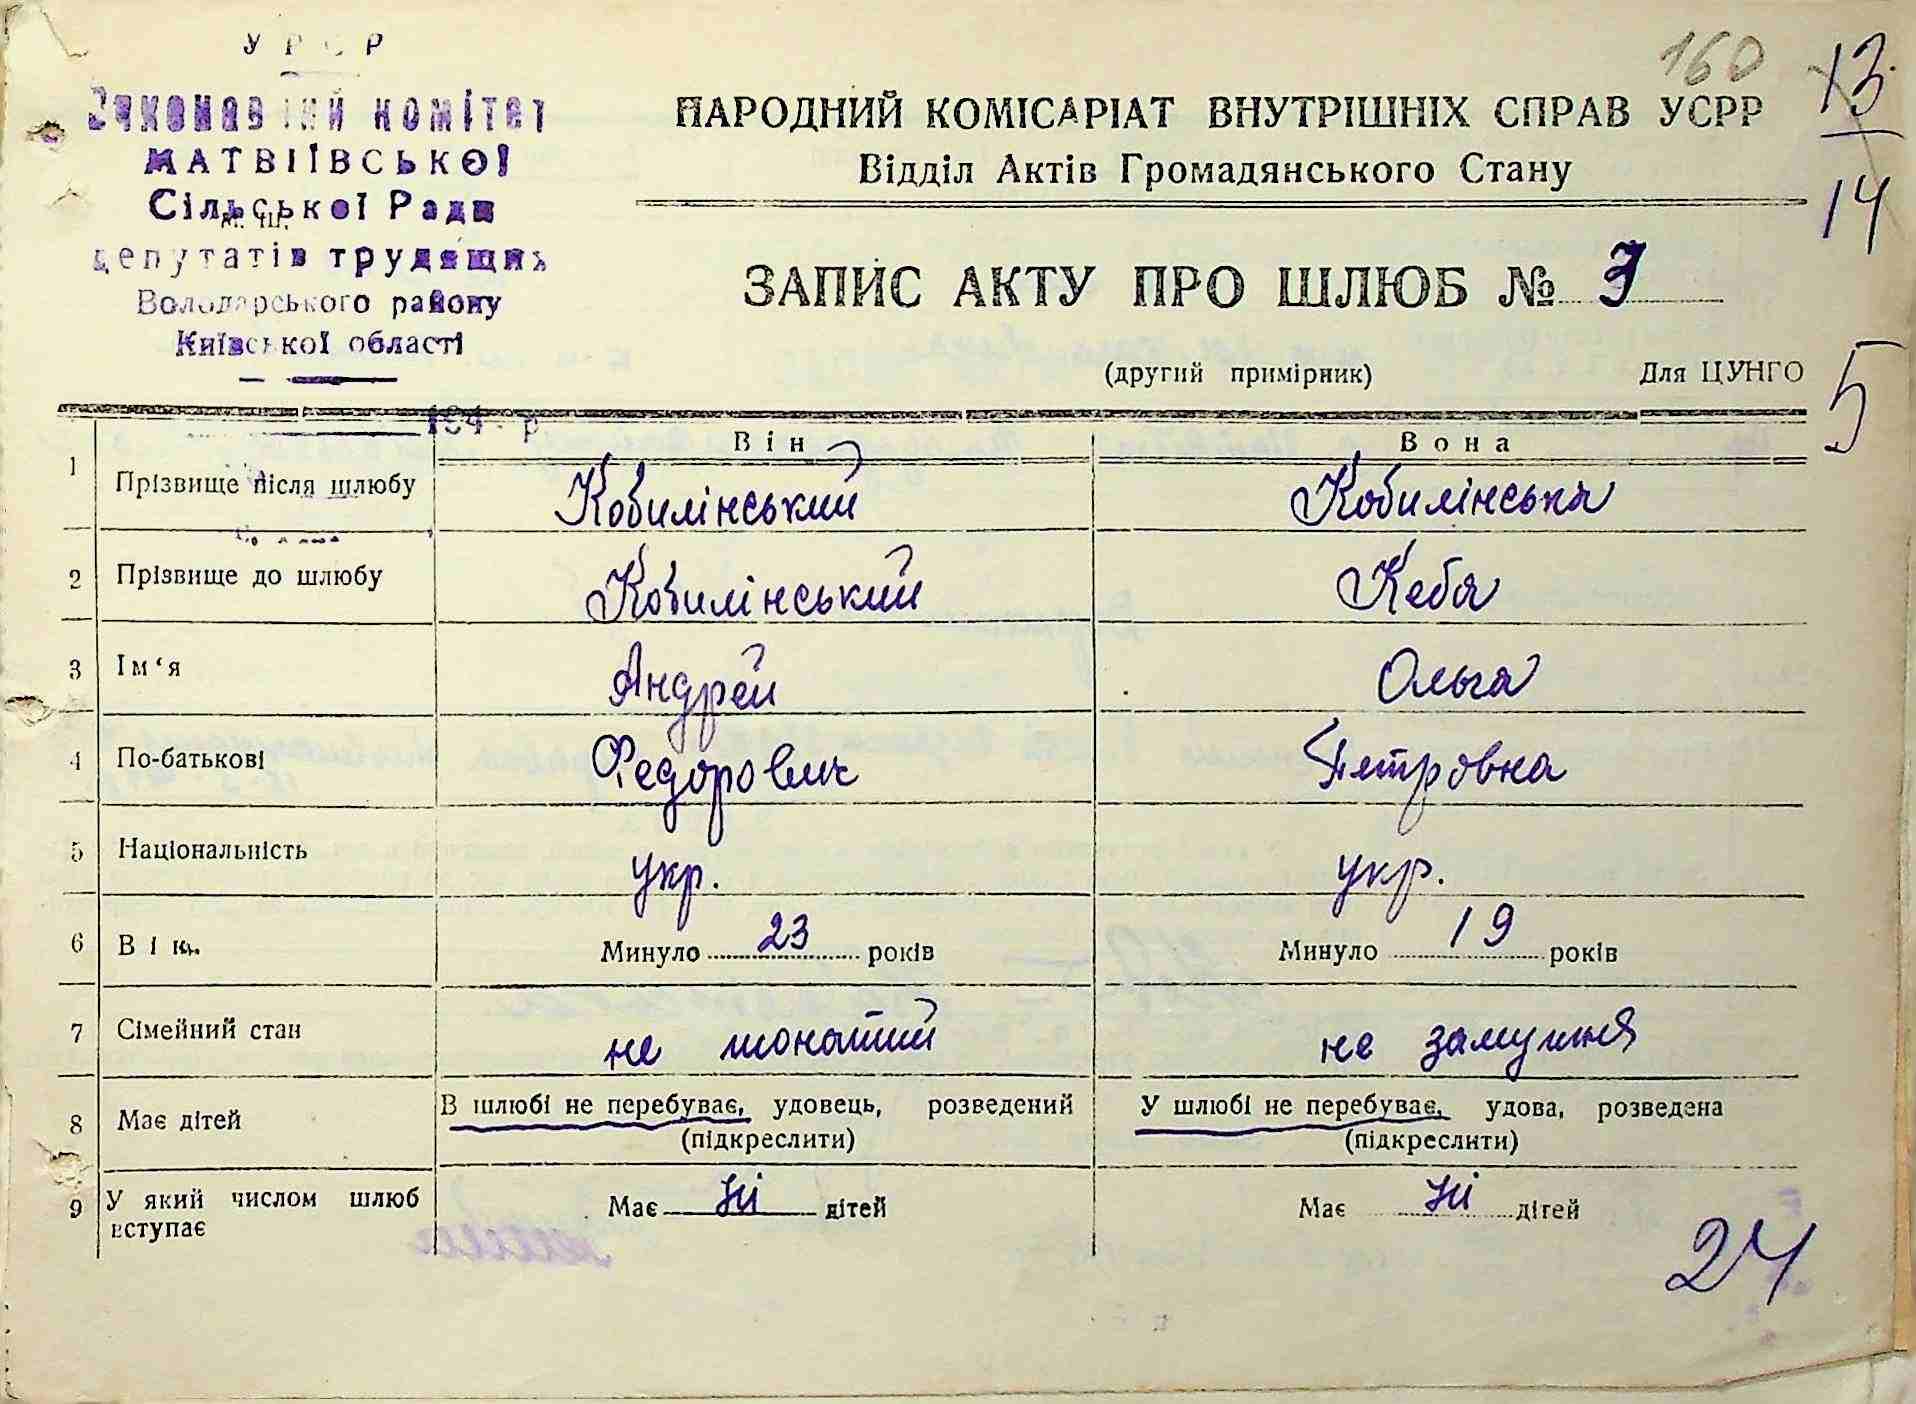 УРСР
Виконавчий комітет
МАТВІЇВСЬКОЇ
Сільської Ради
депутатів трудящих
Володарського району
Київської області
194 р.
160
13
14
НАРОДНИЙ КОМІСАРІАТ ВНУТРІШНІХ СПРАВ УСРР
Відділ Актів Громадянського Стану
ЗАПИС АКТУ ПРО ШЛЮБ №
(другий примірник) Для ЦУНГО
5
Він Вона
1 Прізвище після шлюбу Кобилінський Кобилінська
2 Прізвище до шлюбу Кобилінський Кебя
3 Ім‘я Андрей Ольга
4 По-батькові Федорович Петровна
5 Національність укр. укр.
6 Вік. Минуло 23 років Минуло 19 років
7 Сімейний стан не жонатий не замужня
8 Має дітей В шлюбі не перебуває, удовець, розведений У шлюбі не перебуває, удова, розведена
(підкреслити) (підкреслити)
9 У який числом шлюб Має Ні дітей Має Ні дітей
вступає
24